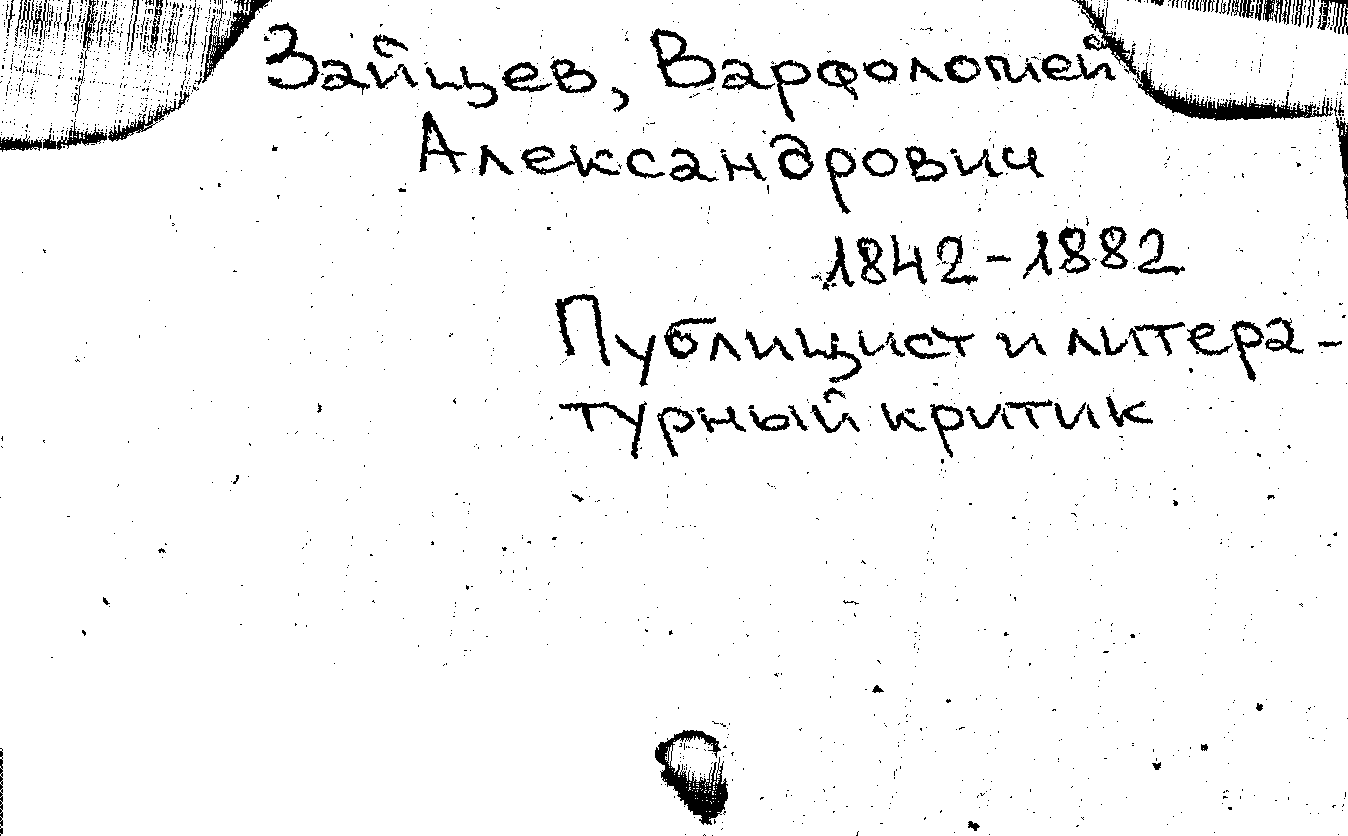 Зайцев, Варфоломей
Александрович
1842-1882
Публицист и литера-
турный критик